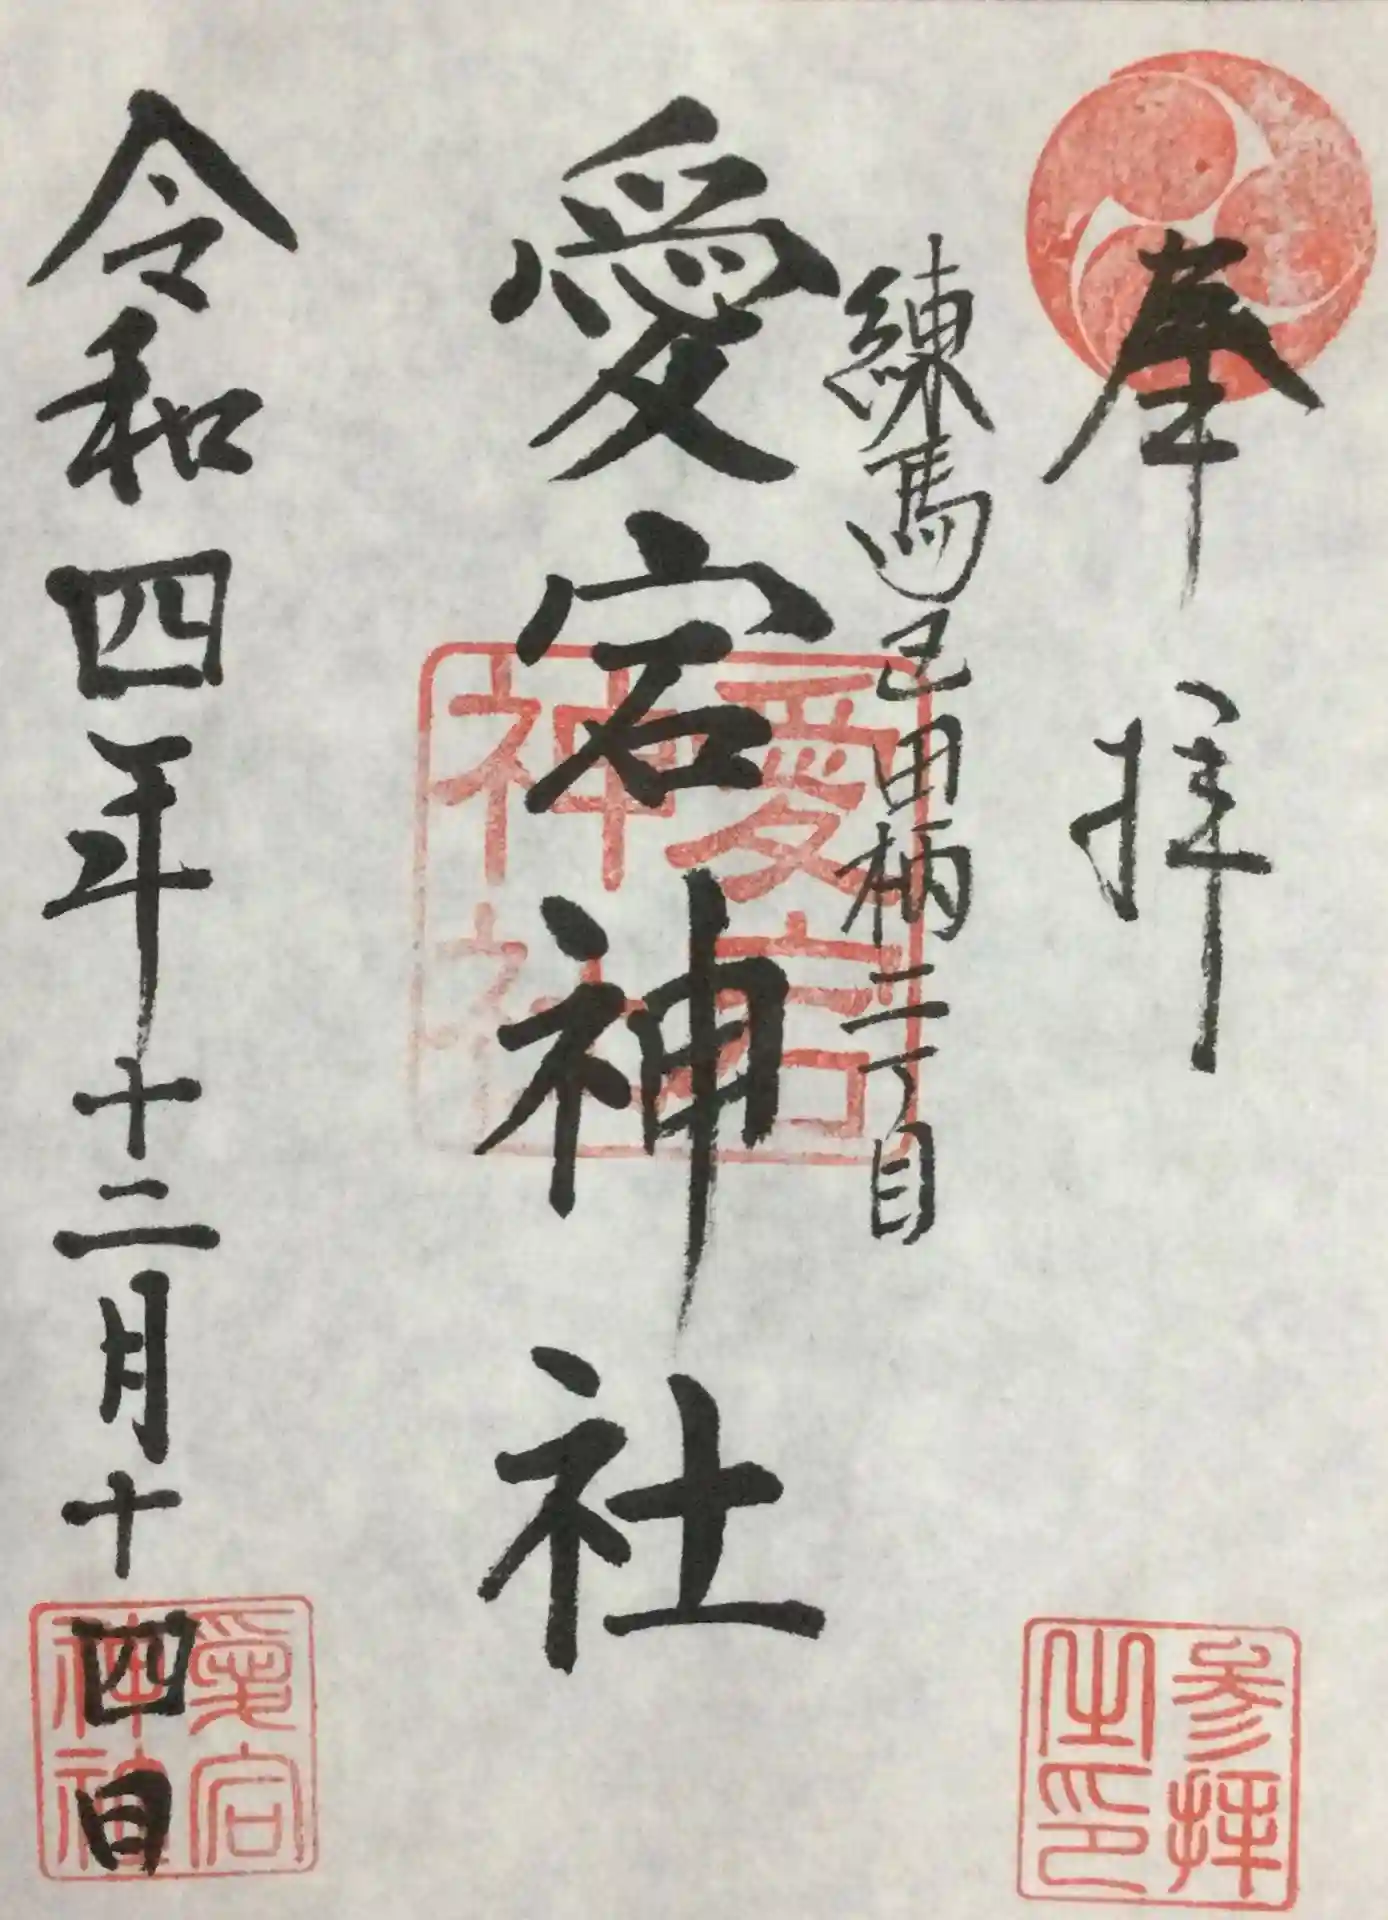 奉拝
練馬区田柄二丁目
愛宕神社
愛宕神社
令和四年十二月十四日
愛宕神社
参拝之印